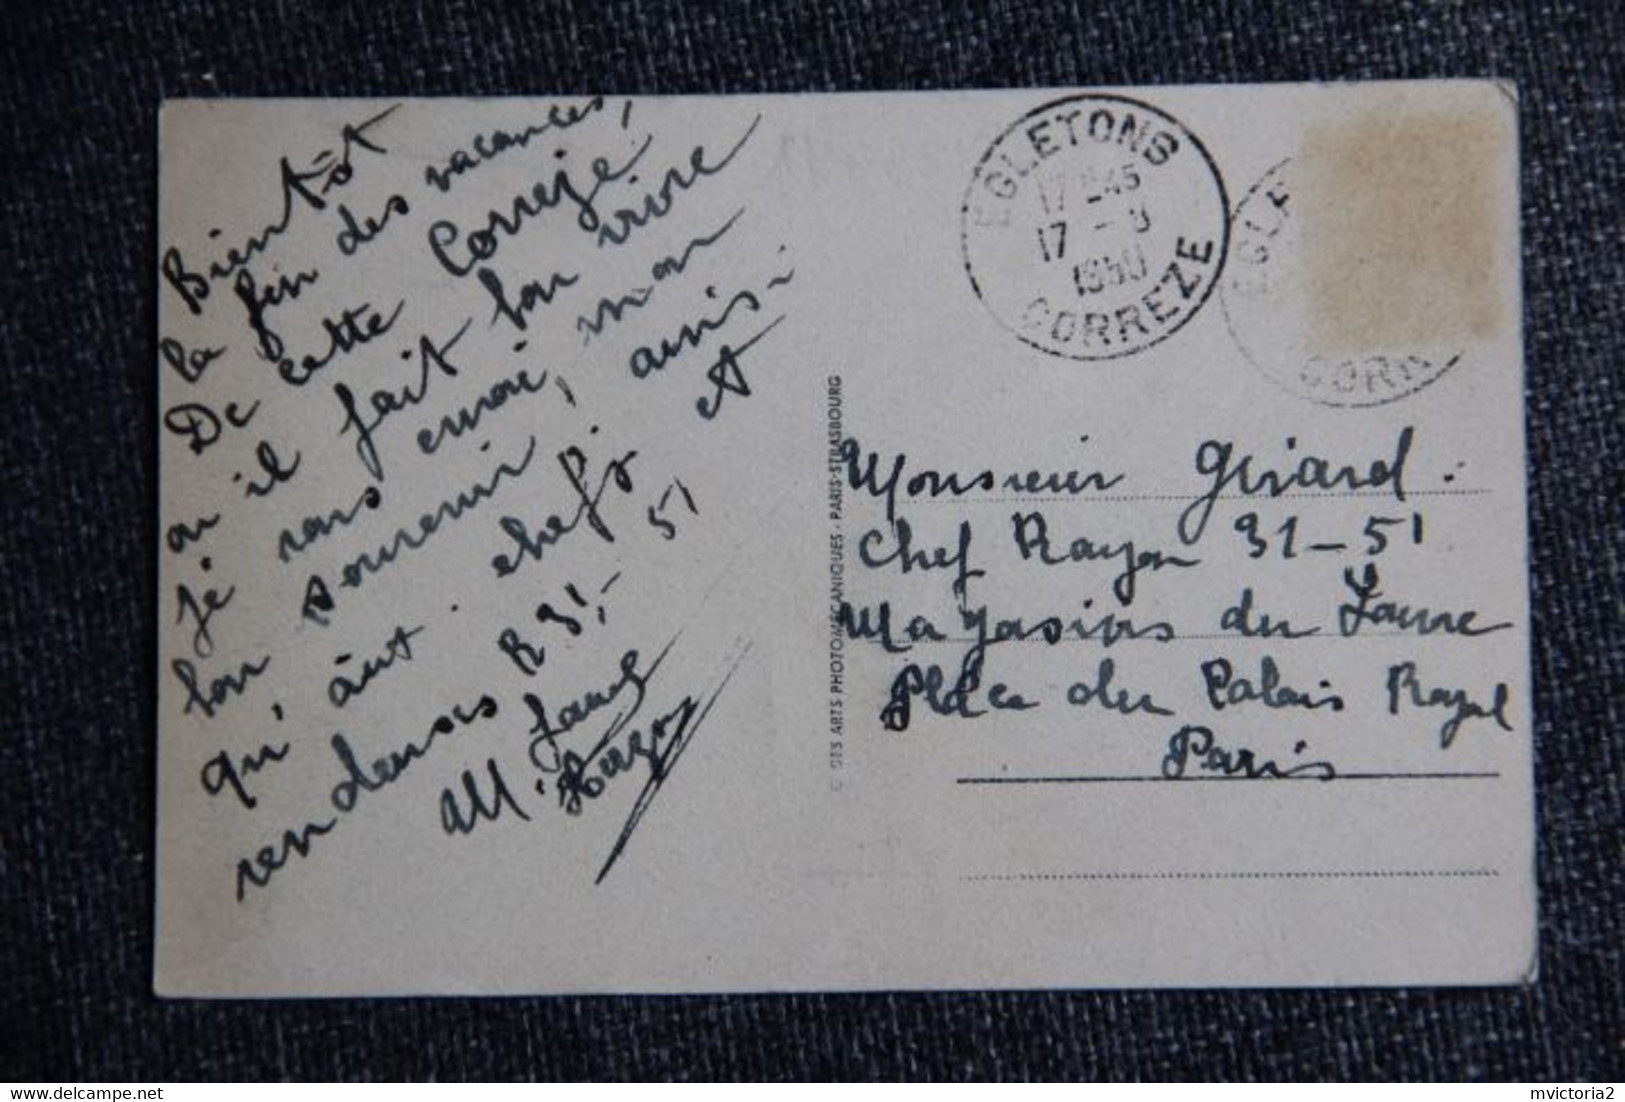 Bientôt
la fin des vacances,
De cette Corrèze
ou il fait bon vivre
Je vous envoi, mon
bon souvenir, ainsi
qu'aux chefs et
vendeuses R 31,- 51
EGLETONS
17 -45
17 - 8
1950
CORREZE
EGLE
CORR
© DES ARTS PHOTOMÉCANIQUES - PARIS-STRASBOURG
Monsieur Girard.
Chef Rayon 31-51
Magasins du Louvre
Place du Palais Royal
Paris
mvictoria2